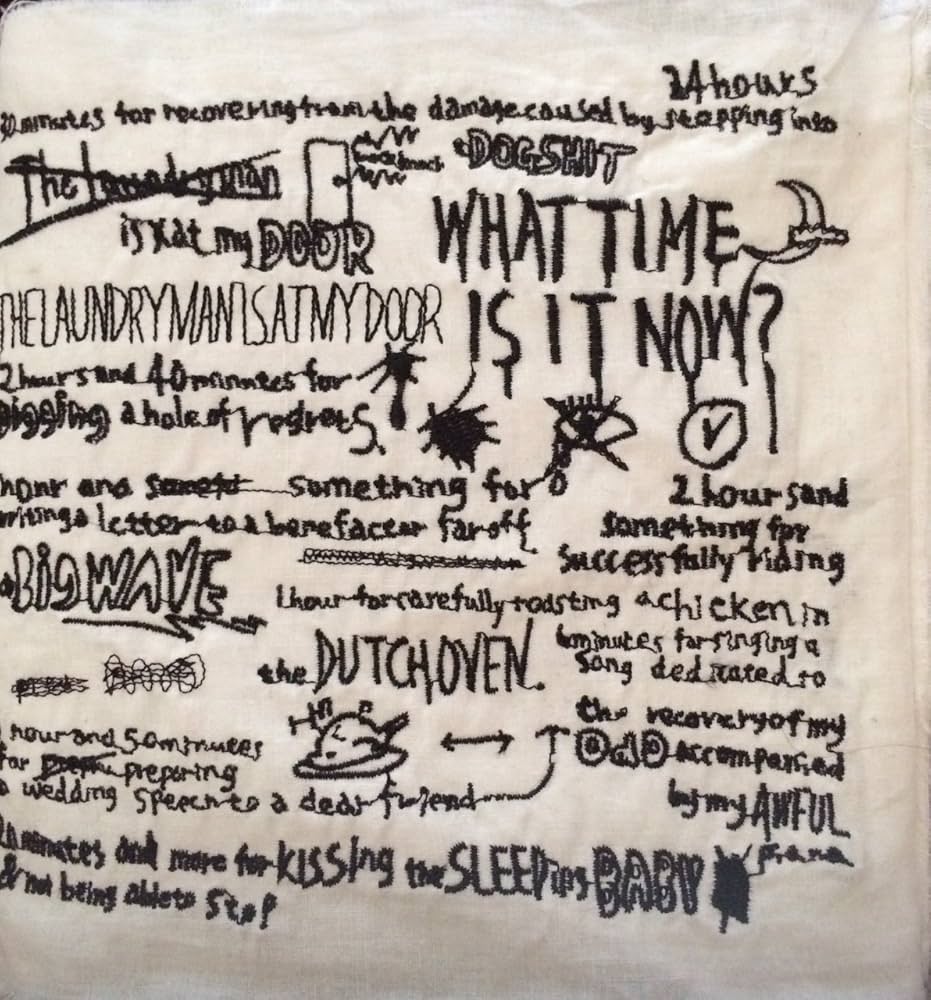 24 hours
minutes for recovering from the damage caused by stepping into
The laundryman
knock knock
a DOGSHIT
is at my DOOR
WHAT TIME
THE LAUNDRY MAN IS AT MY DOOR
IS IT NOW?
2 hours and 40 minutes for
digging a hole of regrets.
hour and something for
writing a letter to a benefactor far off
2 hours and
something for
successfully riding
a BIG WAVE
1 hour for carefully roasting a chicken in
the DUTCH OVEN.
minutes for singing a
song dedicated to
the recovery of my
DAD accompanied
by my AWFUL
piano
hour and 50 minutes
for preparing
a wedding speech to a dear friend
minutes and more for KISSING the SLEEPING BABY
& not being able to stop